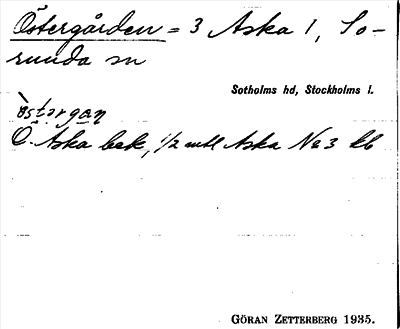 Östergården = 3 Aska 1, So-
runda sn
Sotholms hd, Stockholms l.
östərgan
Ö. Aska bek, 1/2 mtl Aska No 3 kb
GÖRAN ZETTERBERG 1935.